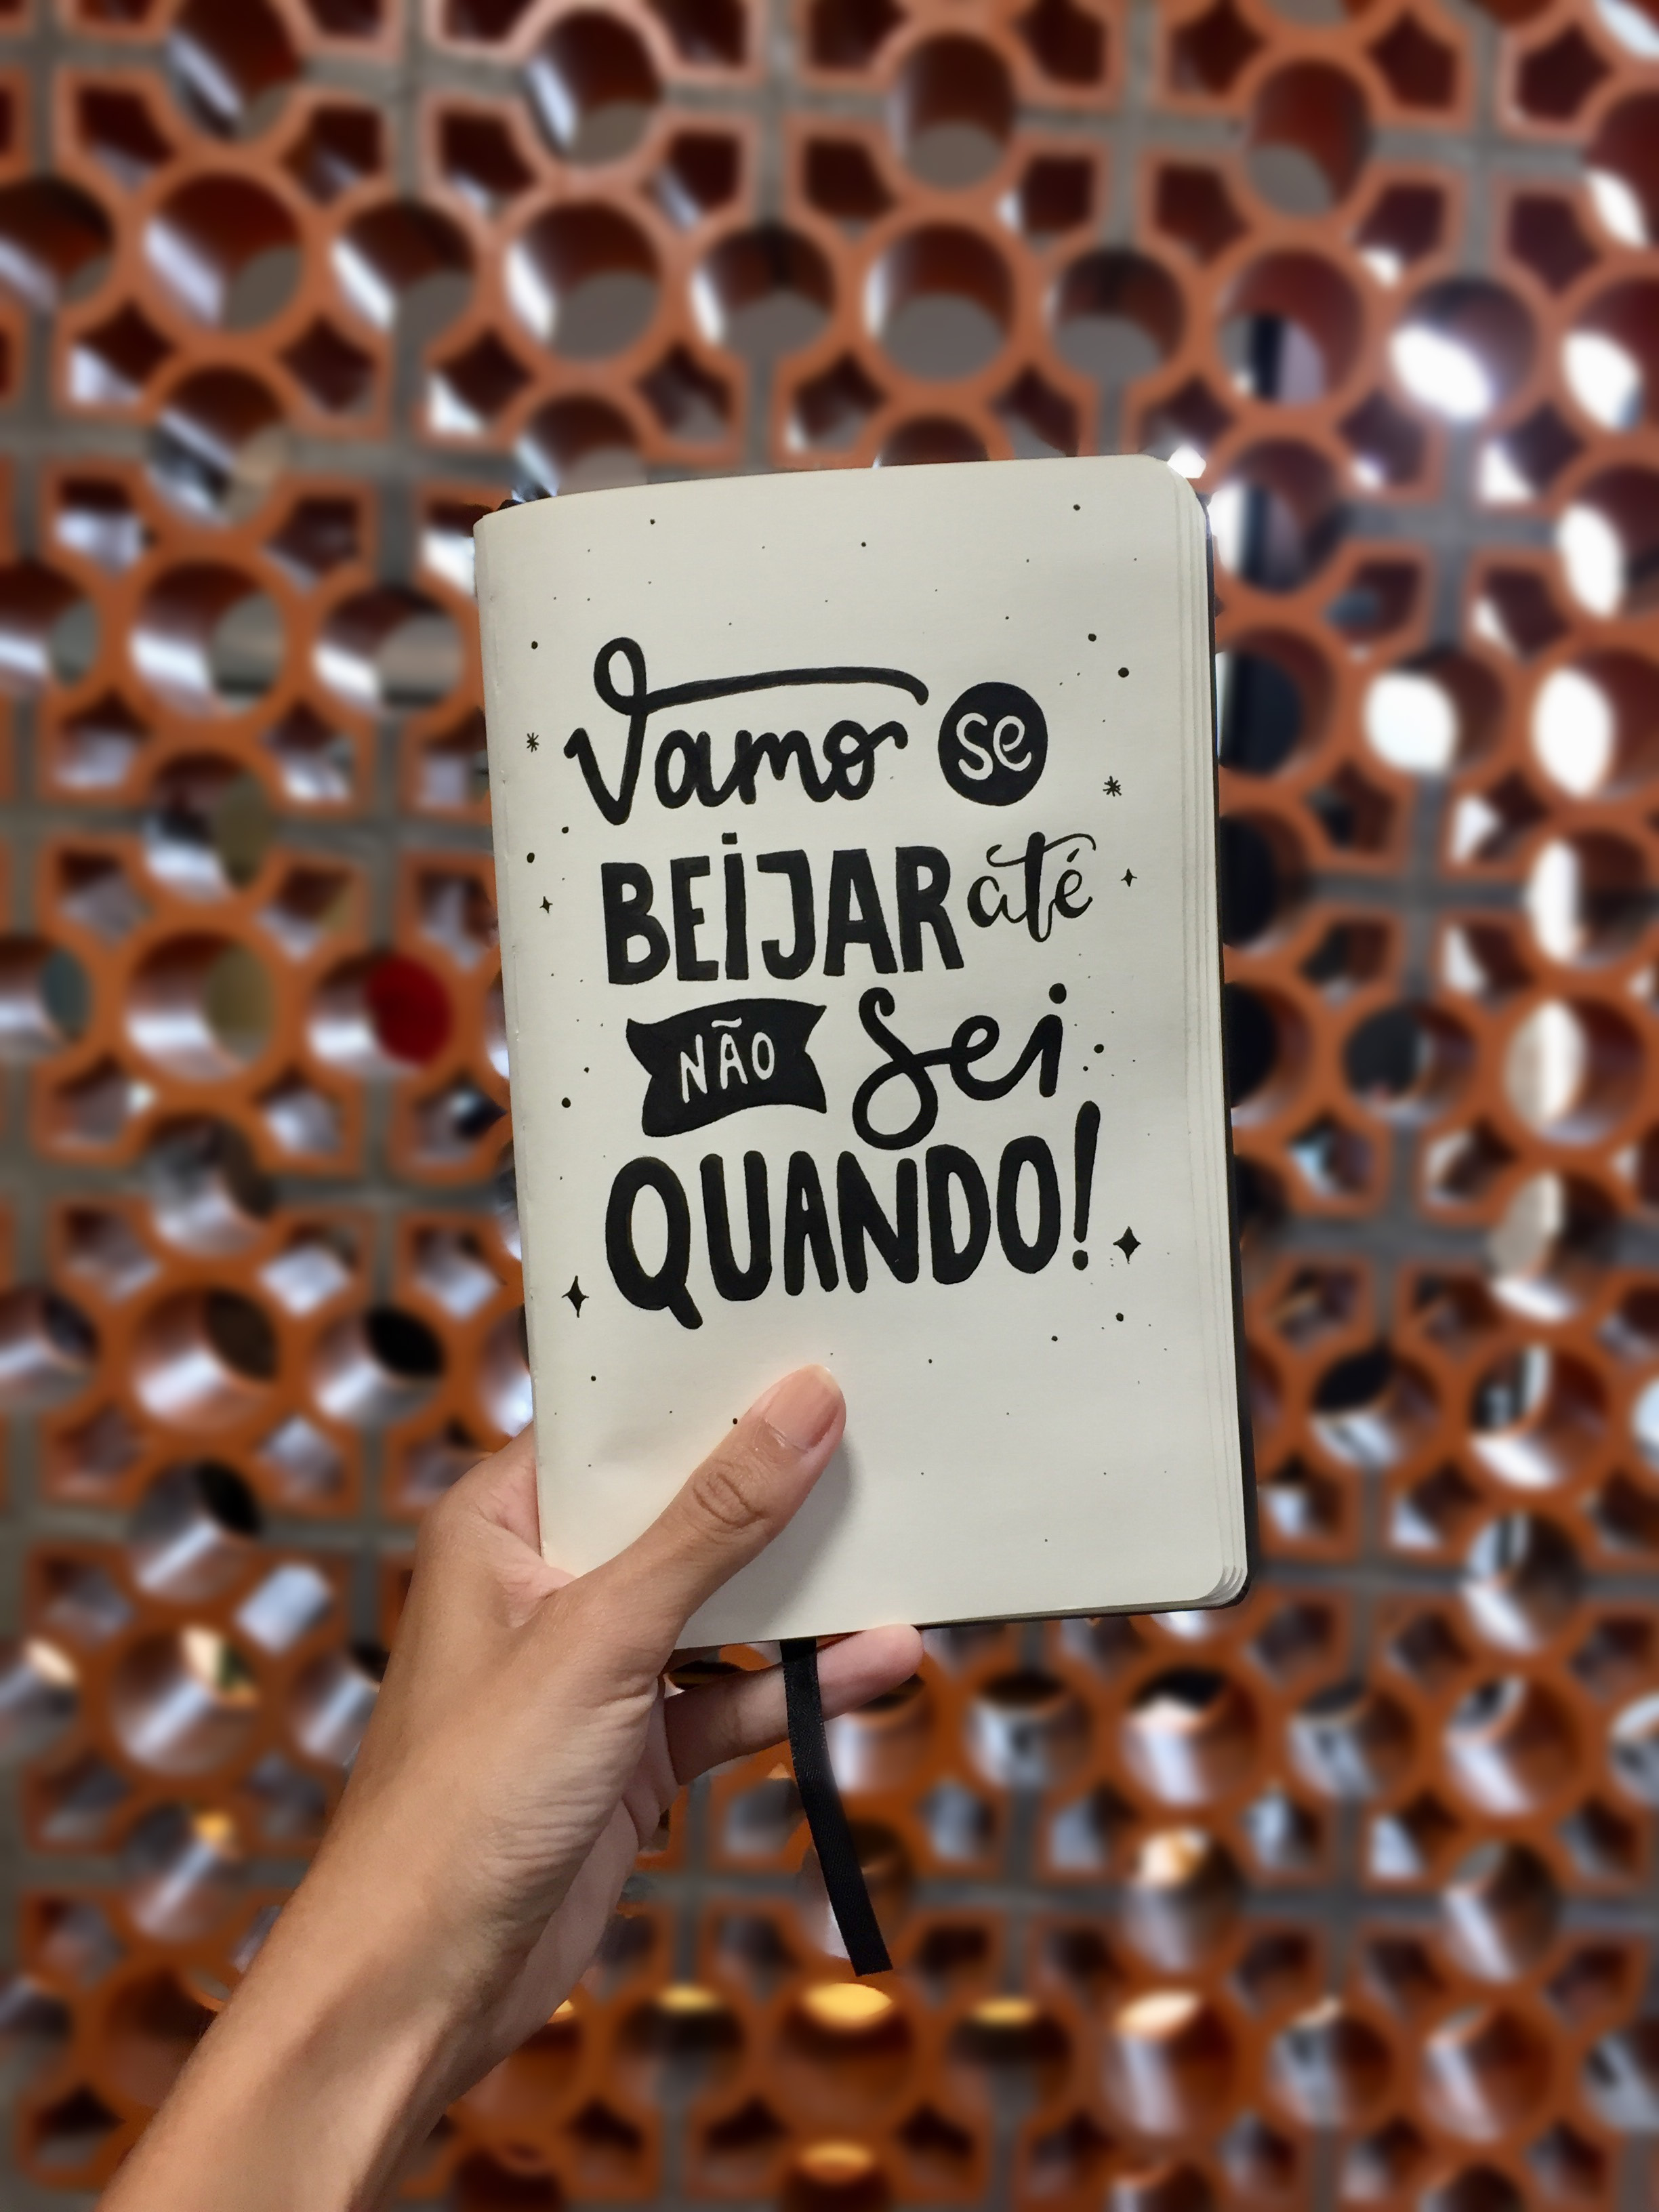 Vamo se
BEIJAR até
NÃO Sei
QUANDO!